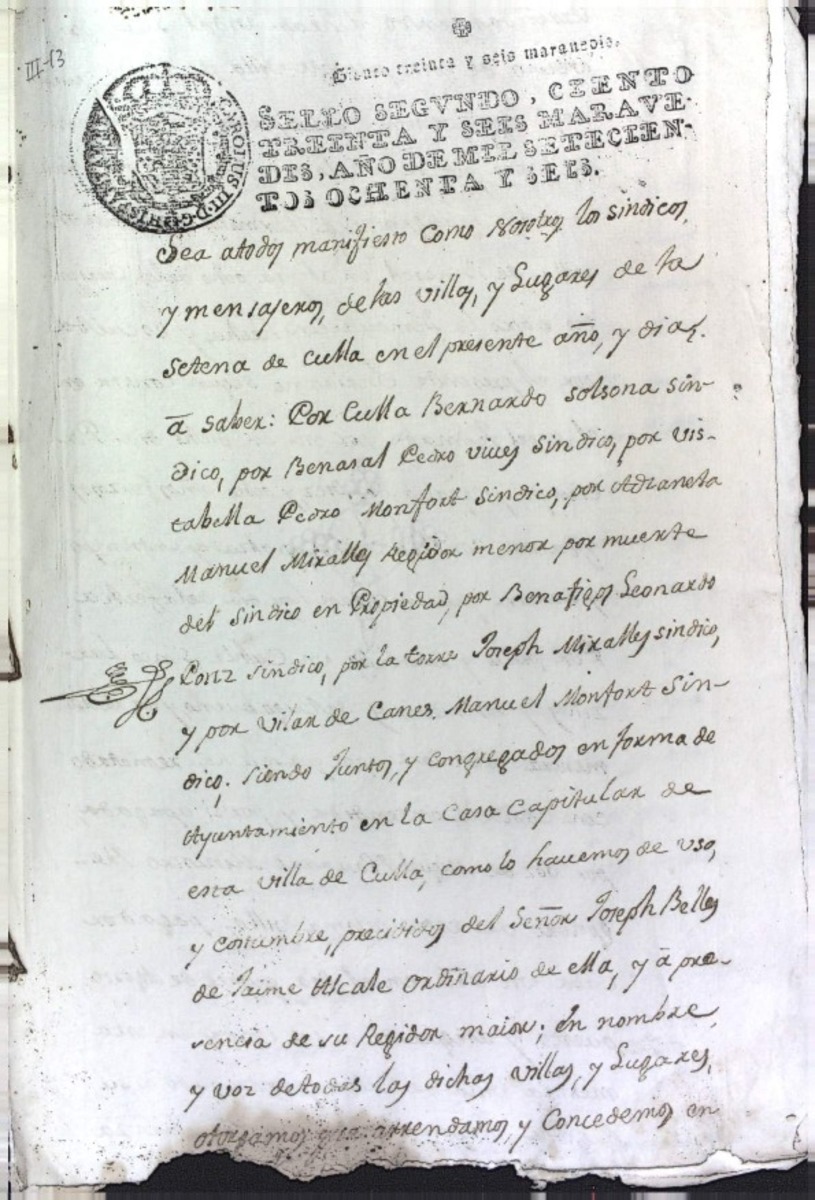 III-13
Ciento treinta y seis marauedis.
SELLO SEGVNDO, CIENTO
TREINTA Y SEIS MARAVE-
DIS, AÑO DE MIL SETECIEN-
TOS OCHENTA Y SEIS.
CAROLUS III D G HISPANIAR
Sea atodos manifiesto como Nosotros los sindicos,
y mensajeros, de las villas, y Lugares de la
Setena de Culla en el presente año, y dia.
ā saber: Por Culla Bernardo Solsona Sin-
dico, por Benasal Pedro Vives Sindico, por Vis-
tabella Pedro Monfort Sindico, por Adzaneta
Manuel Miralles Regidor menor por muerte
del Sindico en Propiedad, por Benafigos Leonardo
Ponz Sindico, por la torre Joseph Miralles sindico,
y por Vilar de Canes. Manuel Monfort Sin-
dico. Siendo Juntos, y congregados en forma de
Ayuntamiento en la Casa Capitular de
esta Villa de Culla, como lo havemos de uso,
y costumbre, precididos del Señor Joseph Belles
de Jaime Alcale Ordinario de ella, y ā pre-
sencia de su Regidor maior; En nombre,
y voz detodas las dichas Villas, y Lugares,
otorgamos que arrendamos, y Concedemos en